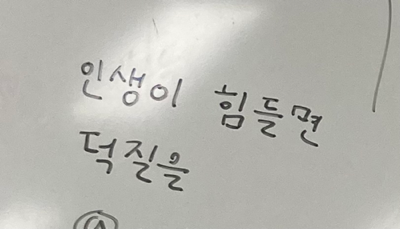 인생이 힘들면
덕질을